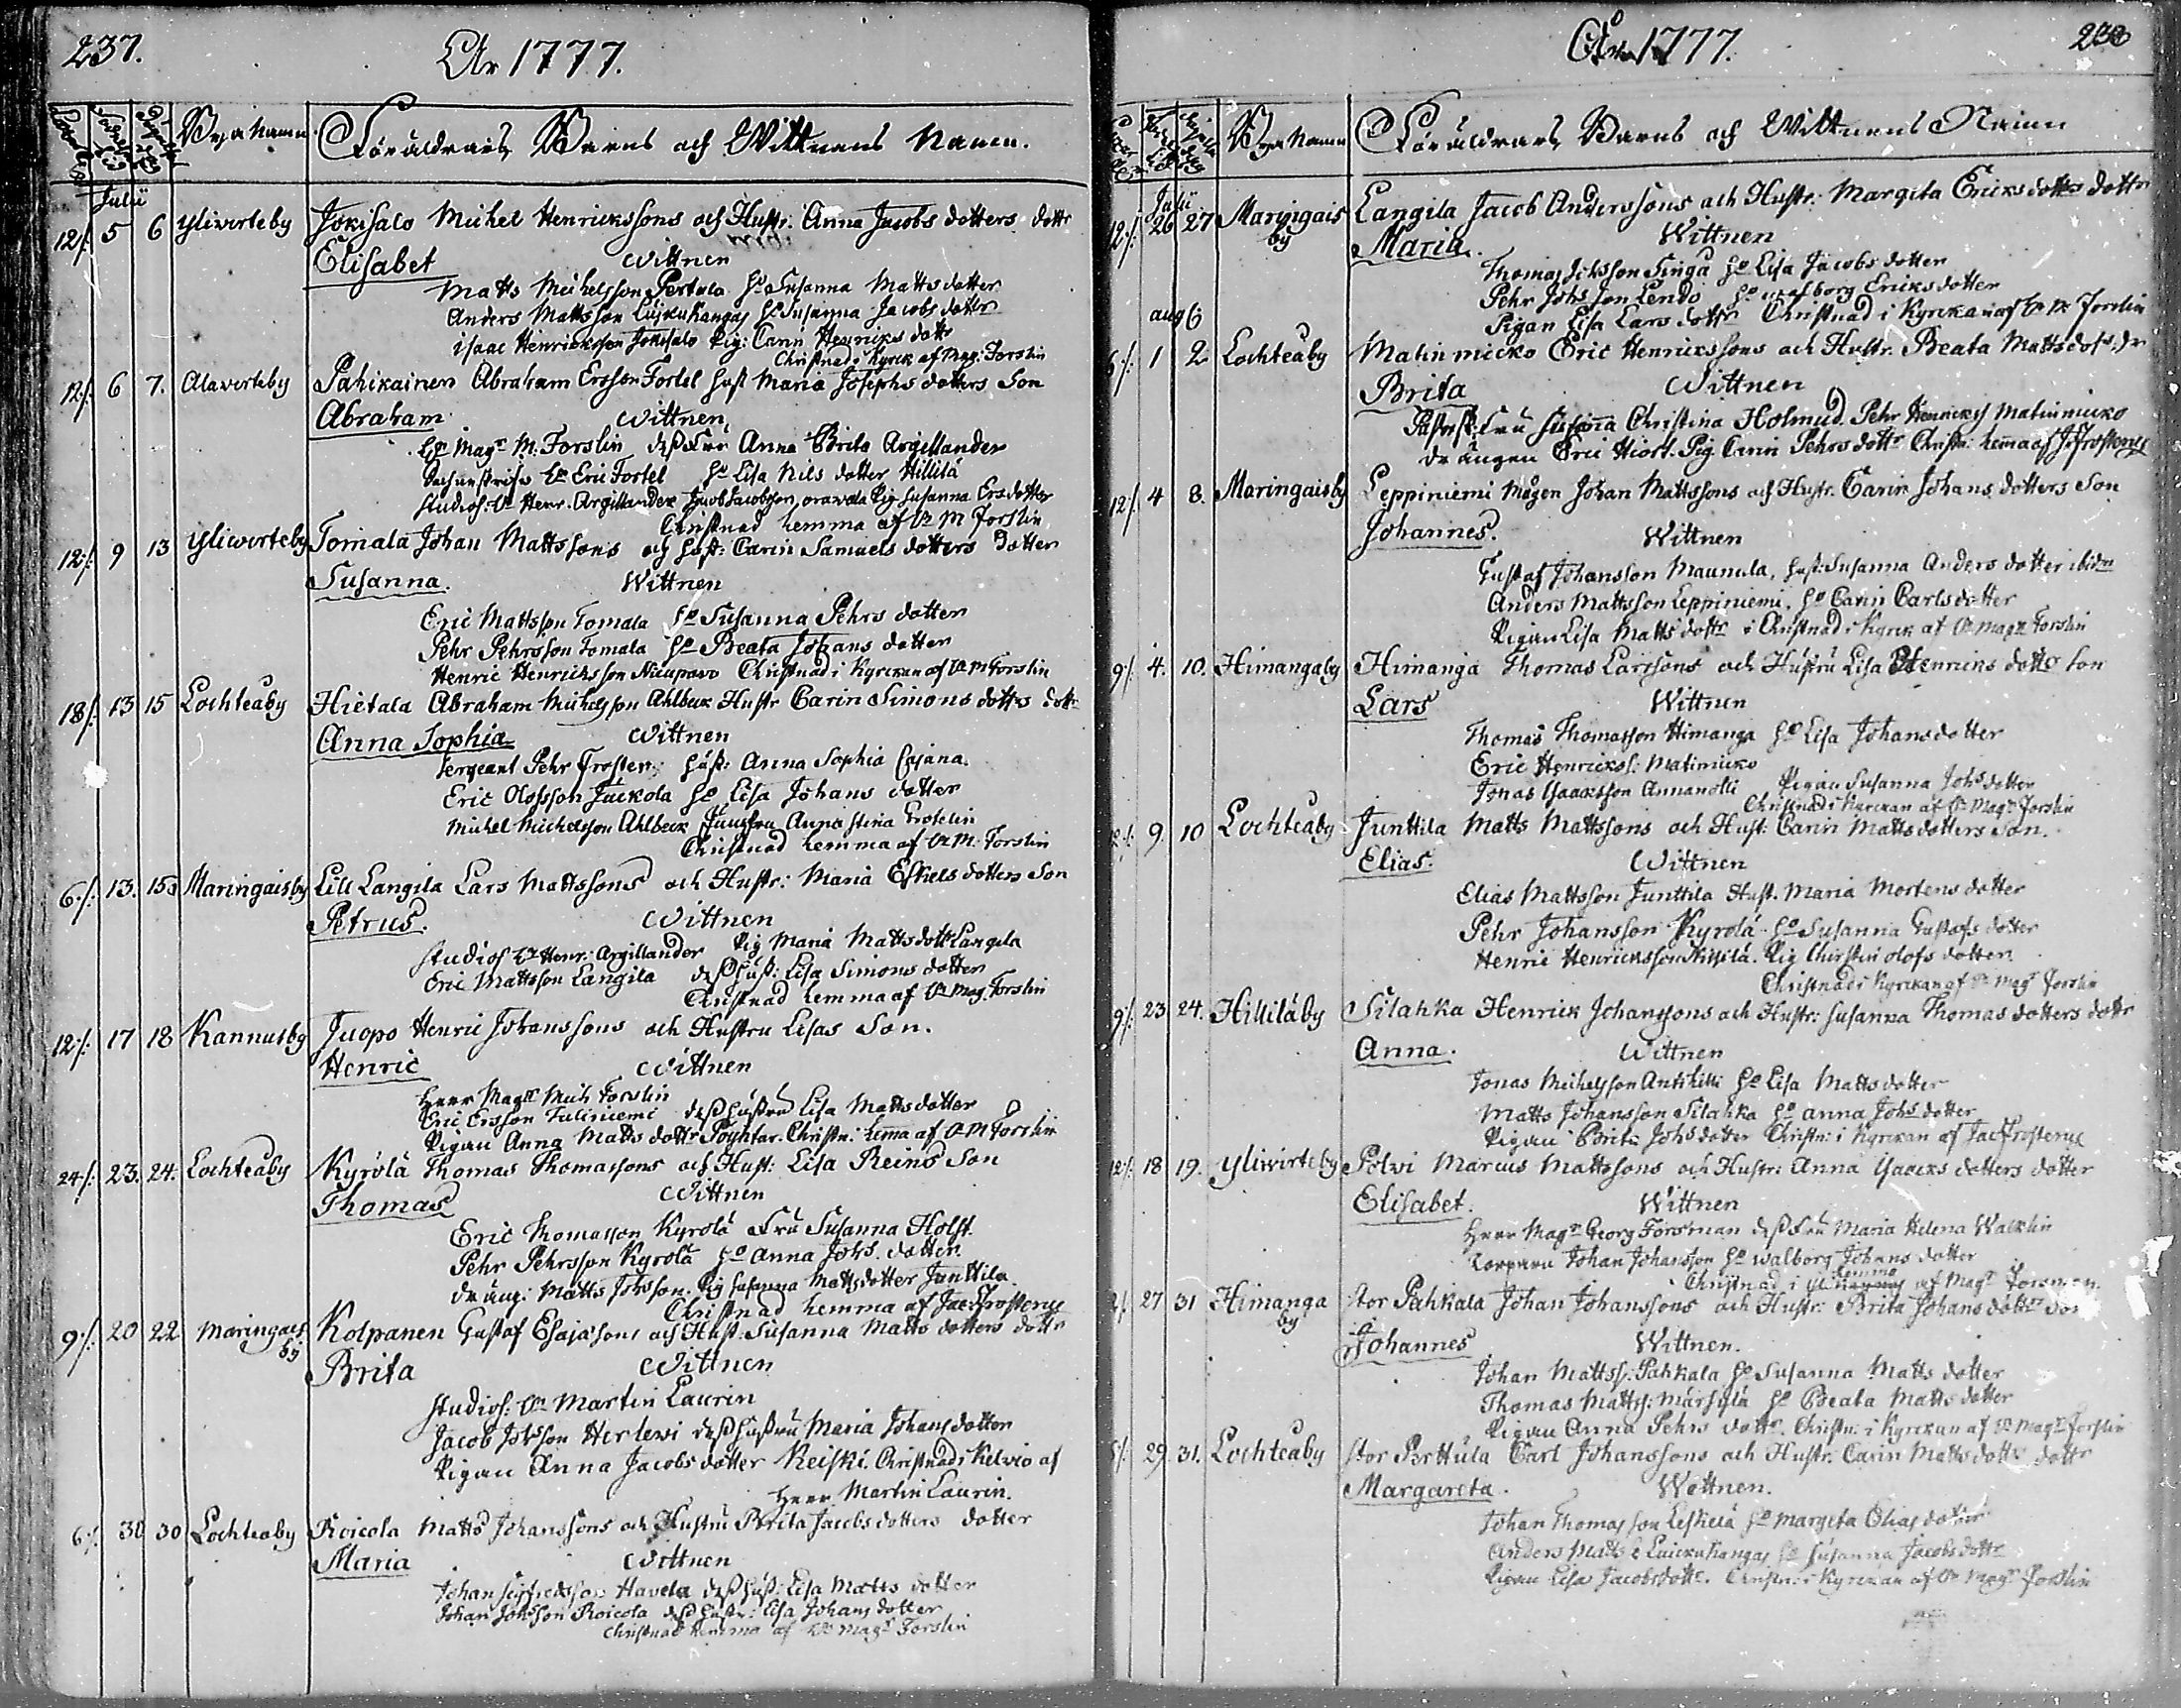 237.
År 1777.
Bya Namn
Föräldrars Barns och Wittnens Namn.
Julii
12/: 5 6 Yliwirteby Jokisalo Michel Henrickssons och Hustr: Anna Jacobs dotters dottr
Elisabet Wittnen
Matts Michelsson Pertula Ho Susanna Matts dotter
Anders Mattsson Luskukangas Ho Susanna Jacobs dotter
Isaac Henricksson Jokisalo Pig: Carin Henrics dottr
Christnad i Kyrck af Mag: Forslin
12/: 6 7. Alawirteby Pahikainen Abraham Ersson Fortel Hust Maria Josephs dotters Son
Abraham Wittnen
Hr Magr M. Forslin dess Fru Anna Brita Argillander
Hr Eric Fortel Ho Lisa Nils dotter Hillilä
Studios: Hr Henr. Argillander Jacob Jacobsson orawala Pig Susanna Ersdotter
Christnad hemma af Hr M Forslin
12/: 9 13 Yliwirteby Tomala Johan Mattssons och Hust: Carin Samuels dotters Dotter
Susanna. Wittnen
Eric Mattsson Tomala Ho Susanna Pehrs dotter
Pehr Pehrsson Tomala Ho Beata Johans dotter
Henric Henricksson Niiupavo Christnad i Kyrckan af Hr M Forslin
18/: 13 15 Lochteaby Hietala Abraham Michelsson Ahlbeck Hustr Carin Simons dottrs dottr
Anna Sophia Wittnen
Sergeant Pehr Froster: Hust: Anna Sophia Cajana.
Eric Olofsson Juckola Ho Lisa Johans dotter
Michel Michelsson Ahlbeck Jungfru Anna Stina
Christnad hemma af Hr M. Forslin
6./: 13. 15 Maringaisby Lill Langila Lars Mattssons och Hustr: Maria Eskels dotters Son
Petrus. Wittnen
Studios Hr Henr: Argillander Pig Maria Matts dottr Langila
Eric Mattsson Langila dess Hust: Lisa Simons dotter
Christnad hemma af Hr Mag. Forslin
12/: 17 18 Kannusby Juopo Henric Johanssons och Hustru Lisas Son.
Henric Wittnen
Herr Magr Mich Forslin
Eric Ersson Tuliniemi dess Hustru Lisa Matts dotter
Pigan Anna Matts dottr Pöyhtar. Christn: hemma af Hr M Forslin
24/: 23. 24. Lochteaby Kyrölä Thomas Thomassons och Hust: Lisa Reins Son
Thomas Wittnen
Eric Thomasson Kyrölä Fru Susanna Holst.
Pehr Pehrsson Kyrölä Ho Anna Johs. dotter
Dräng: Matts Johsson. Pig Susanna Matts dotter Junttila.
Christnad hemma af Jac Frosterus
9/: 20 22 Maringais by Kolpanen Gustaf Esajæsons och Hust: Susanna Matts dotters dottr
Brita Wittnen
Studios: Hr Martin Laurin
Jacob Johsson Herlewi dess Hustru Maria Johans dotter
Pigan Anna Jacobs dotter Keiski. Christnad i Kelvio af
Herr Martin Laurin.
6/: 30 30 Lochteaby Roicola Matts Johanssons och Hustru Brita Jacobs dotters dotter
Maria Wittnen
Johan Sigfredsson Havela dess Hust: Lisa Matts dotter
Johan Johsson Roicola dess Hustr: Lisa Johans dotter
Christnad hemma af Hr Magr Forslin
År 1777.
238
Byа Namn
Föräldrars Barns och Wittnens Namn
Julii
12/: 26 27 Maringais by Langila Jacob Anderssons och Hustr: Margeta Ericks dotters dottr
Maria. Wittnen
Thomas Johsson Singa Ho Lisa Jacobs dotter
Pehr Johsson Lendo Ho Walborg Ericks dotter
Pigan Lisa Lars dottr Christnad i Kyrckan af Hr M Forslin
aug
6/: 1 2 Lochteaby Matinmicko Eric Henrickssons och Hustr. Beata Matts dotrs Dr
Brita Wittnen
Fru Susanna Christina Holmud. Pehr Henricks Matinmicko
drängen Eric Hiort. Pig Carin Pehrs dottr Christn: hemma af J Frosterus
12/: 4 8. Maringaisby Leppiniemi Mågen Johan Mattssons och Hustr. Carin Johans dotters Son
Johannes. Wittnen
Gustaf Johansson Maunula, Hust: Susanna Anders dotter ibidm
Anders Mattsson Leppiniemi. Ho Carin Carls dotter
Pigan Lisa Matts dottr Christnad i Kyrck af Hr Magr Forslin
9/: 4. 10. Himangaby Himanga Thomas Larssons och Hustru Lisa Henrics dottr Son
Lars Wittnen
Thomas Thomasson Himanga Ho Lisa Johans dotter
Eric Henrickss: Matinmicko
Jonas Isaacksson Annanolli Pigan Susanna Johs dotter
Christnad i Kyrckan af Hr Magr Forslin
12/: 9. 10 Lochteaby Junttila Matts Mattssons och Hust: Carin Matts dotters Son.
Elias. Wittnen
Elias Mattsson Junttila Hust. Maria Mortens dotter
Pehr Johansson Kyrölä Ho Susanna Gustafs dotter
Henric Henricksson Niskila. Pig Chirstin olofs dotter.
Christnad i Kyrckan af Hr Magr Forslin
9/: 23 24. Hilliläby Silahka Henrick Johanssons och Hustr: Susanna Thomas dotters dottr
Anna. Wittnen
Jonas Michelsson Antihilli Ho Lisa Matts dotter
Matts Johansson Silahka Ho Anna Johs dotter
Pigan Brita Johs dotter Christn: i Kyrckan af Jac Frosterus
12/: 18 19. Yliwirteby Polvi Marcus Mattssons och Hustr: Anna Isaacks dotters dotter
Elisabet. Wittnen
Herr Magr Georg Forsman dess Fru Maria Helena Wacklin
Johan Johansson Ho Walborg Johans dotter
hemma
Christnad i af Magr Forsman.
27 31 Himanga by Stor Pahkala Johan Johanssons och Hustr: Brita Johans dotters Son
Johannes Wittnen.
Johan Mattss: Pahkala Ho Susanna Matts dotter
Thomas Mattss: Märsylä Ho Beata Matts dotter
Pigan Anna Pehrs dottr. Christn: i Kyrckan af Hr Magr Forslin
29 31. Lochteaby Stor Perttula Carl Johanssons och Hustr. Carin Matts dottrs dottr
Margareta. Wittnen.
Johan Thomasson Leskelä Ho Margeta Elias dotter
Anders Matts Luickukangas Ho Susanna Jacobs dottr
Pigan Lisa Jacobs dottr. Christn: i Kyrckan af Hr Magr Forslin